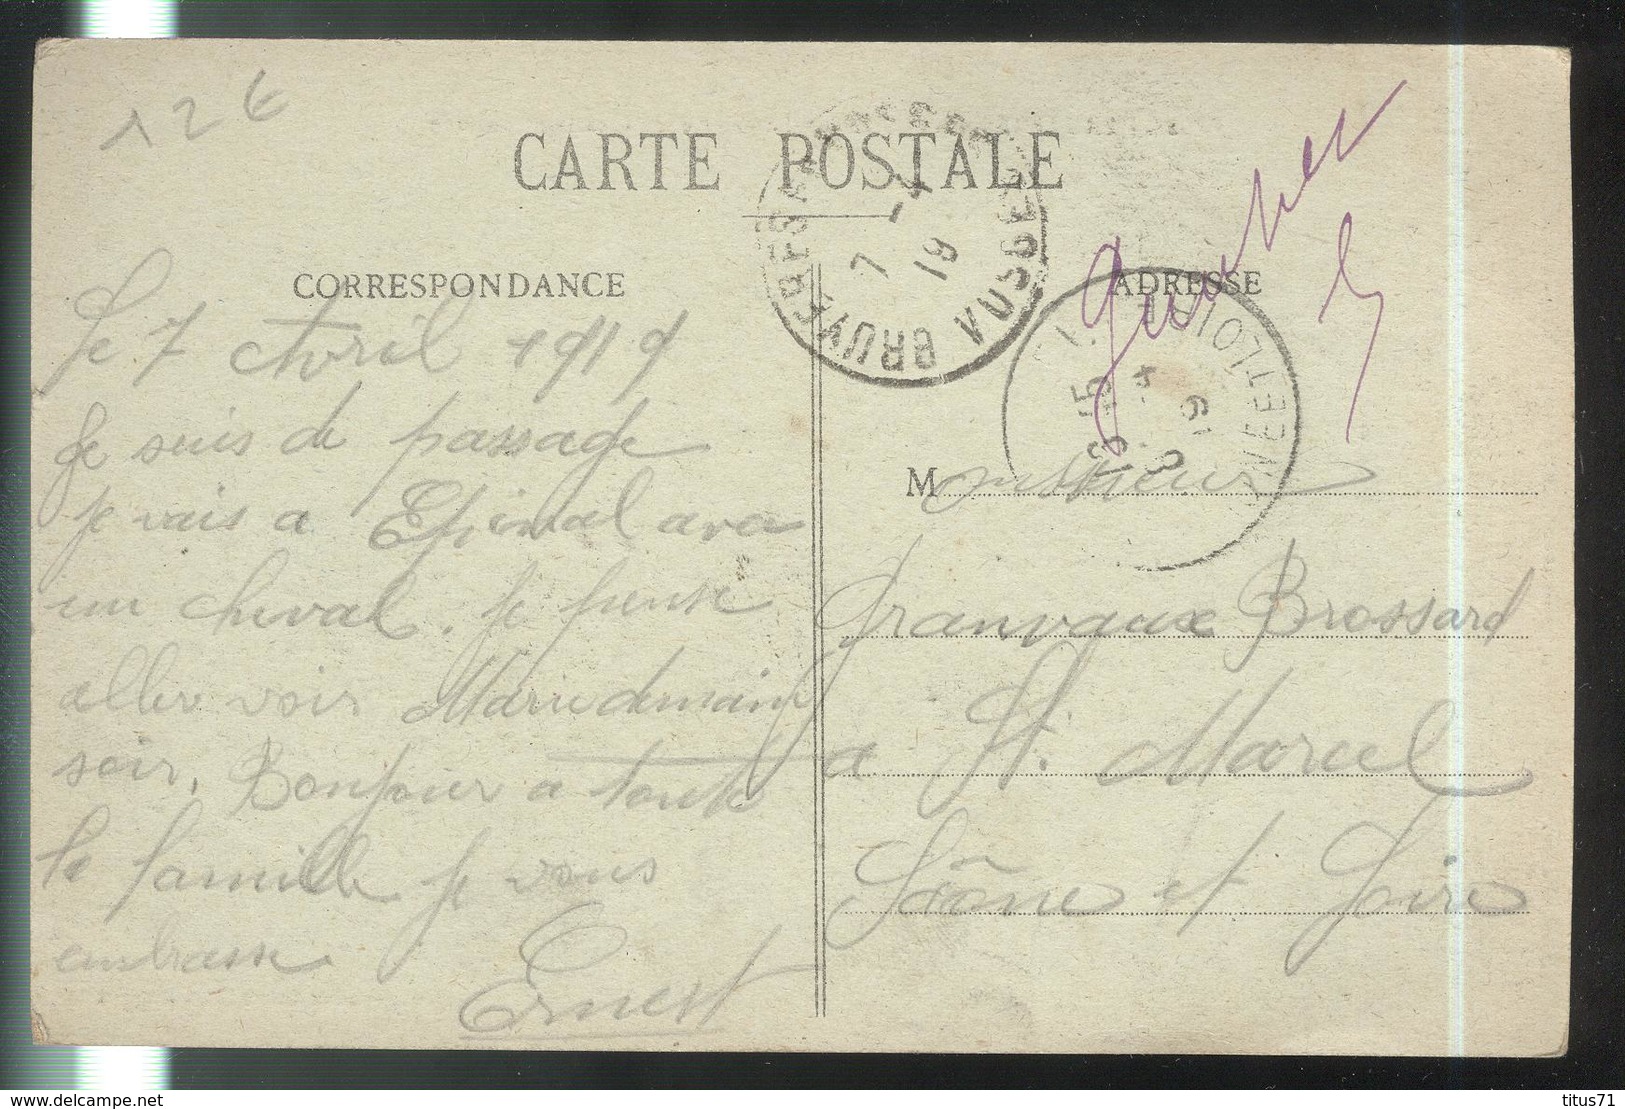 12 €
CARTE POSTALE
CORRESPONDANCE
ADRESSE
BRUYERES VOSGES
7 - 4
19
ET LOIRE
15
9 - 4
19
Le 7 Avril 1919
Je suis de passage
je vais a Epinal avec
un cheval. Je pense
aller voir Marie demain
soir. Bonjour a toute
la famille Je vous
embrasse
Ernest
Monsieur
Granvaux Brossard
a St. Marcel
Saône et Loire
https://www.delcampe.net
titus71